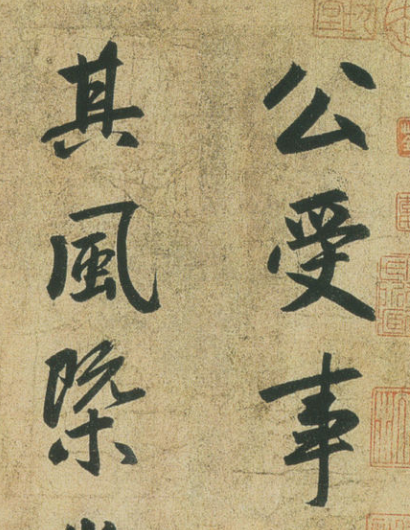 公受事
其風槩